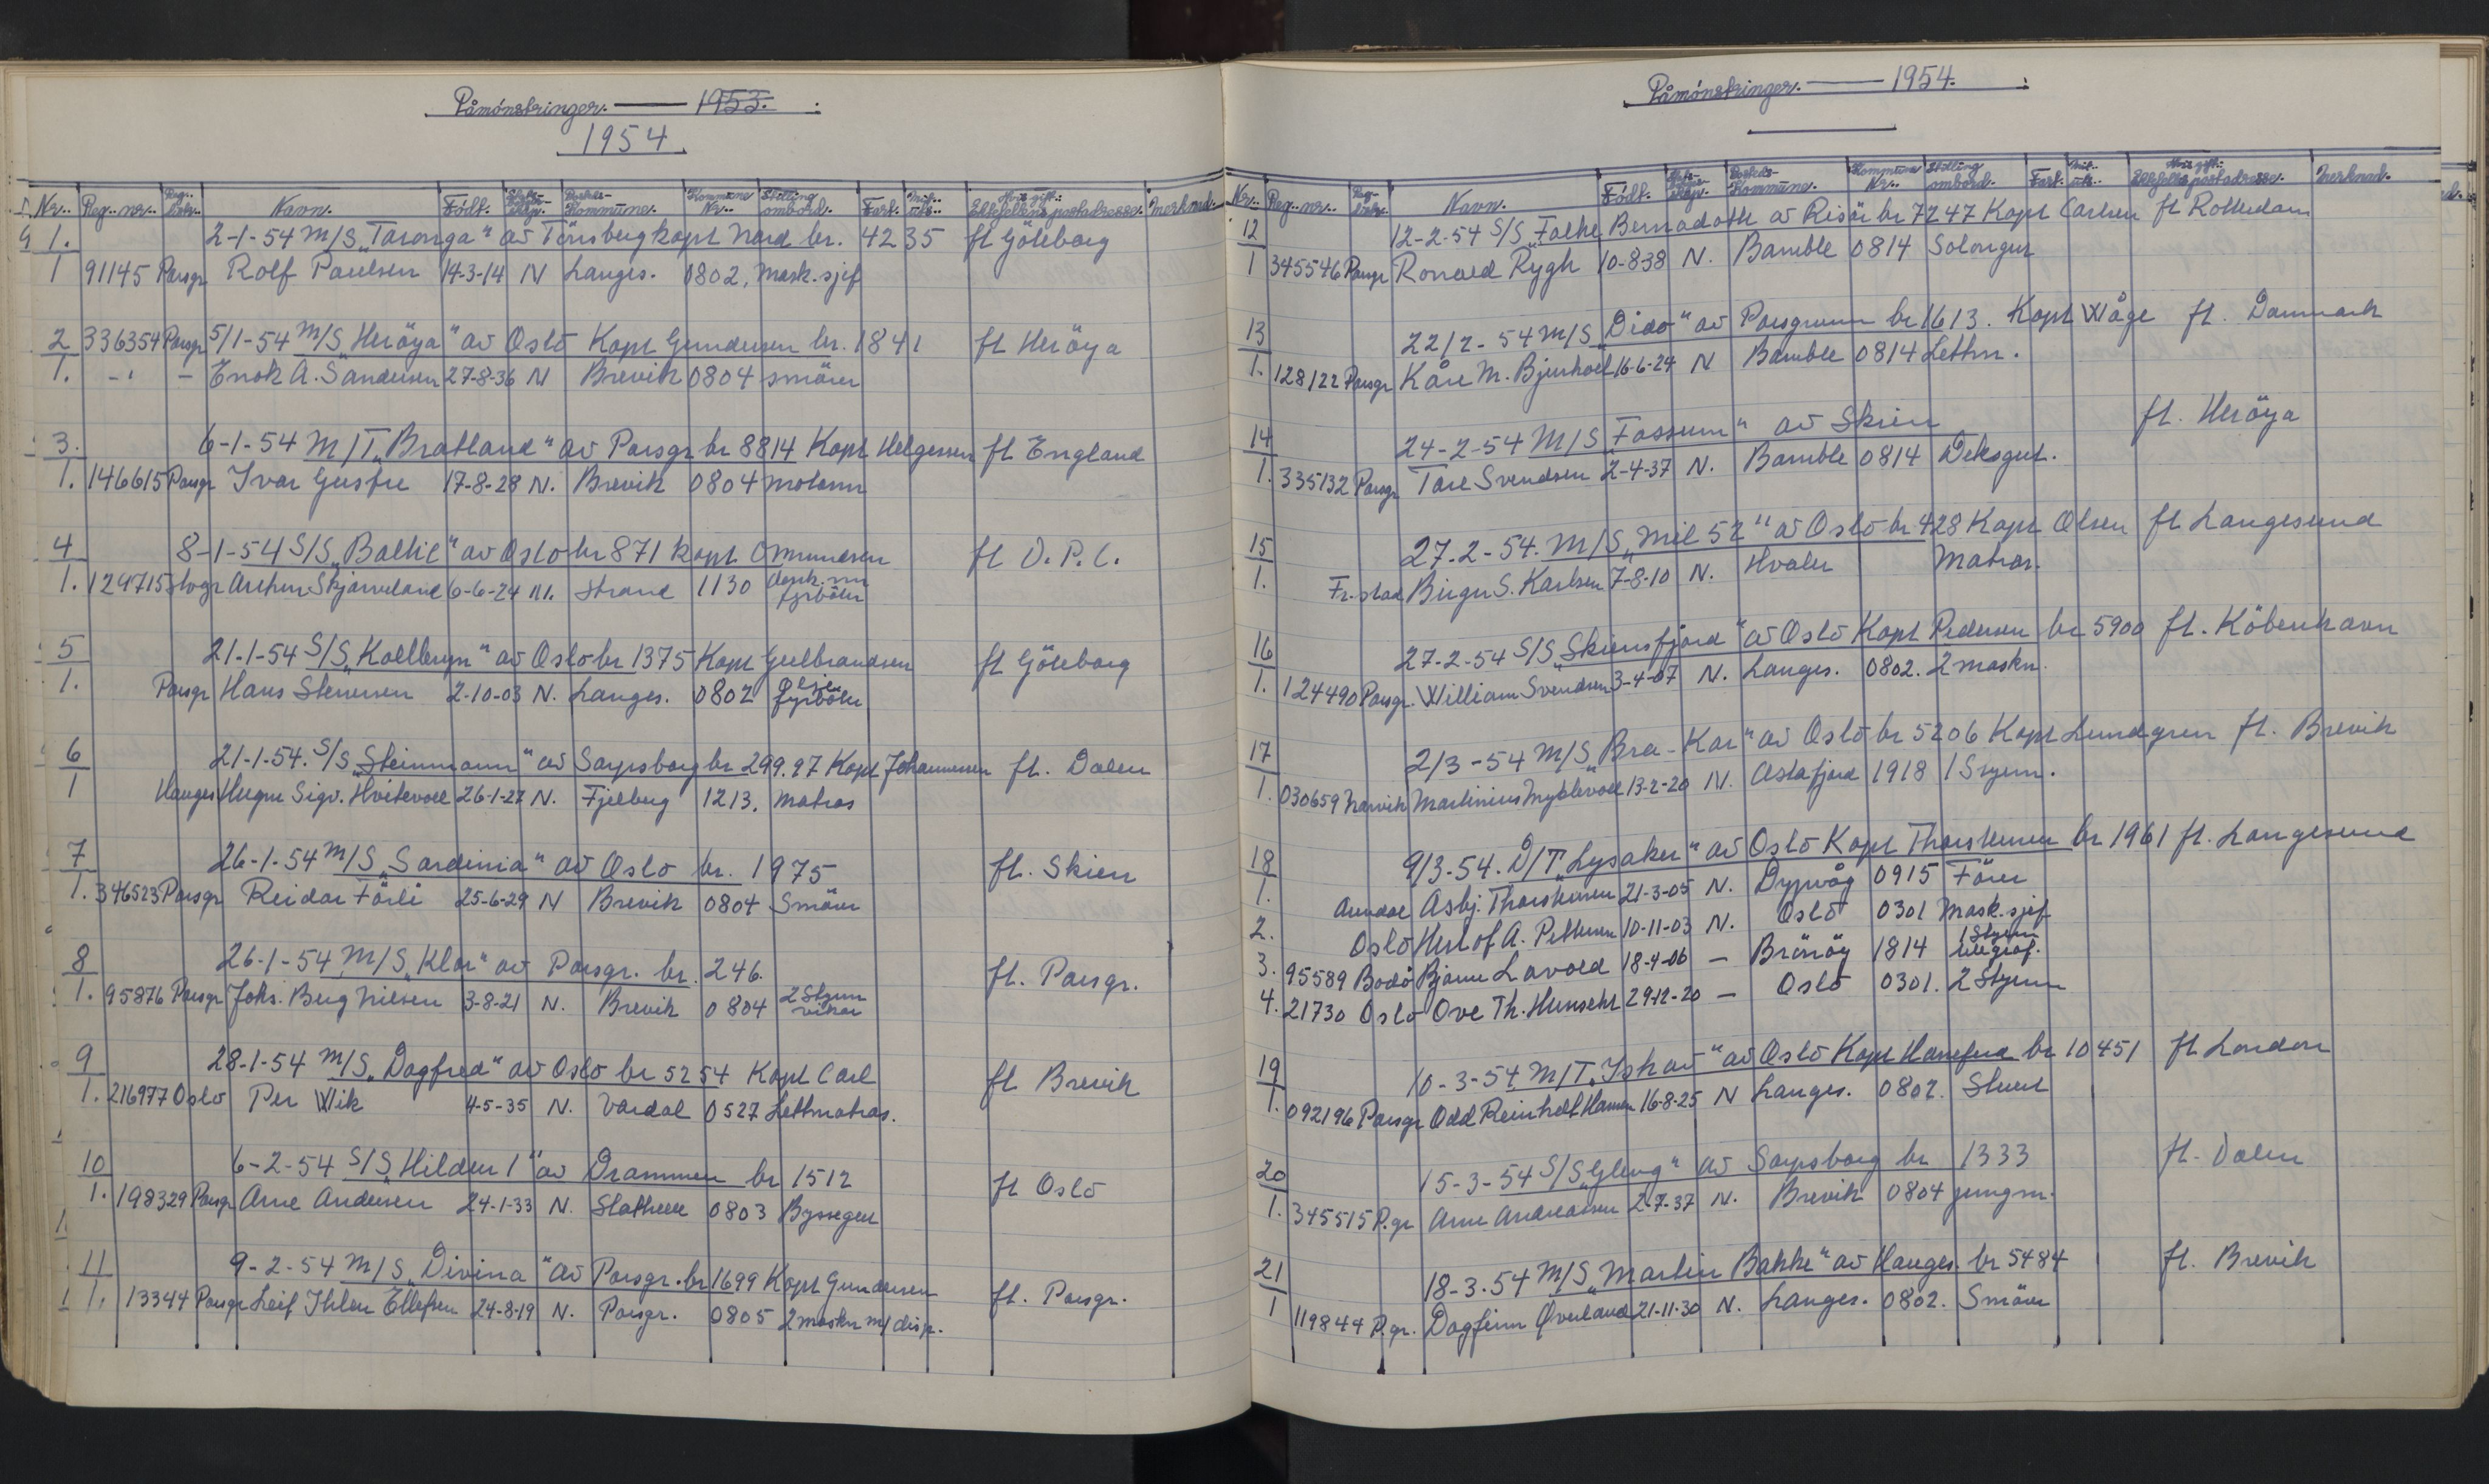 Påmönstringer. — 1953.
1954
Nr.. Reg.. nr.. Reg.. distr.. Navn. Född. Stats- borg. Bosteds- Kommüne. Kommüne Nr.. Stilling ombord. Fart. Mil.. uts.. Hvis gift.: Ektefellens postadresse. Merknad.
1. 2-1-54 M/S „Taronga" av Tönsberg kapt Nord br. 4235 ft Göteborg
1 91145 Porsgr Rolf Paulsen 14-3-14 N Langes. 0802, Mask. sjef
2 336354 Porsgr 5/1-54 M/S „Heröya" av Oslo Kapt Gundersen br. 1841 ft Heröya
1. -"- Enok A. Sandersen 27-8-36 N Brevik 0804 smörer
3. 6-1-54 M/T „Bratland" av Porsgr br 8814 Kapt Helgesen ft England
1. 146615 Porsgr Ivar Gusfre 17-8-28 N. Brevik 0804 motorm
4 8-1-54 S/S „Baltic" av Oslo br 871 kapt Ommundsen ft O.P.C.
1. 129715 Stvgr Arthur Skjörveland 6-6-24 N. Strand 1130 donk. m fyrböter
5 21-1-54 S/S „Kollbryn" av Oslo br 1375 Kapt Gulbrandsen ft Göteborg
1. Porsgr Hans Stenersen 2-10-03 N. Langes. 0802 olje fyrböter
6 21-1-54. S/S „Steinmann" av Sarpsborg br 299.97 Kapt Johannessen ft. Dalen
1 Hauges Sigv. Hvitevoll 26-1-27 N. Fjelberg 1213. matros
7 26-1-54 M/S „Sardinia" av Oslo br. 1975 ft. Skien
1. 346523 Porsgr Reidar Förli 25-6-29 N Brevik 0804 Smörer
8 26-1-54 M/S „Klar" av Porsgr. br. 246. ft. Porsgr.
1. 95876 Porsgr Johs. Berg Nilsen 3-8-21 N. Brevik 0804 2 Styrm vikar
9 28-1-54 M/S „Dagfred" av Oslo br 5254 Kapt Carl ft Brevik
1. 216977 Oslo Per Wik 4-5-35 N. Vardal 0527 Lettmatros.
10 6-2-54 S/S „Hilder 1" av Drammen br 1512 ft Oslo
1. 198329 Porsgr Arne Andersen 24-1-33 N. Stathelle 0803 Byssegutt
11 9-2-54 M/S „Divina" av Porsgr. br 1699 Kapt Gundersen ft. Porsgr.
1. 13344 Porsgr Leif Ihlen Ellefsen 24-8-19 N. Porsgr. 0805 2 maskn m/ disp.
Påmönstringer. — 1954.
Nr.. Reg.. nr.. Reg.. distr.. Navn. Född. Stats- borg. Bosteds- Kommüne. Kommüne Nr.. Stilling ombord. Fart. Mil.. uts.. Hvis gift.: Ektefelles postadresse. Merknad.
12 12-2-54 S/S „Folke Bernadotte av Risör br 7247 Kapt Carlsen ft Rotterdam
1 345546 Porsgr Ronald Rygh 10-8-38 N. Bamble 0814 Salongsr
13 22/2-54 M/S „Dido" av Porsgrunn br 1613. Kapt Wåge ft. Danmark
1. 128122 Porsgr Kåre M. Bjerkholt 16-6-24 N Bamble 0814 Lettm.
14 24-2-54 M/S „Fossum" av Skien ft. Heröya
1. 335132 Porsgr Tore Svendsen 2-4-37 N. Bamble 0814 Deksgut.
15 27-2-54. M/S „Mil 52" av Oslo br 428 Kapt Olsen ft Langesund
1. Fr.stad Birger S. Karlsen 7-8-10 N. Hvaler Matros.
16 27-2-54 S/S „Skiensfjord" av Oslo Kapt Pedersen br 5900 ft. Köbenhavn
1. 124490 Porsgr. William Svendsen 3-4-07 N. Langes. 0802. 2 maskn.
17 2/3-54 M/S „Bra-Kar" av Oslo br 5206 Kapt Lundgren ft. Brevik
1. 030659 Narvik Martinius Myklevoll 13-2-20 N. Astafjord 1918 1 Styrm.
18 9/3-54. D/T „Lysaker" av Oslo Kapt Thorstensen br 1961 ft. Langesund
1. Arendal Asbj. Thorstensen 21-3-05 N. Dypvåg 0915 Förer
2. Oslo Herlof A. Pettersen 10-11-03 N. Oslo 0301 Mask. sjef
3. 95589 Bodö Bjarne Lavold 18-4-06 — Brönöy 1814 1 Styrm telegraf.
4. 21730 Oslo Ove Th. 29-12-20 — Oslo 0301. 2 Styrm
19 10-3-54 M/T „Ishav" av Oslo Kapt br 10451 ft London
1. 092196 Porsgr Odd Reinholt Hansen 16-8-25 N Langes. 0802. Stuert
20 15-3-54 S/S „Gleng" av Sarpsborg br 1333 ft. Dalen
1. 345515 P.gr Arne Andreassen 2-7-37 N. Brevik 0804 jungm.
21 18-3-54 M/S „Martin Bakke" av Hauges. br 5484 ft. Brevik
1 119844 P.gr. Dagfinn Øverland 21-11-30 N. Langes. 0802. Smörer